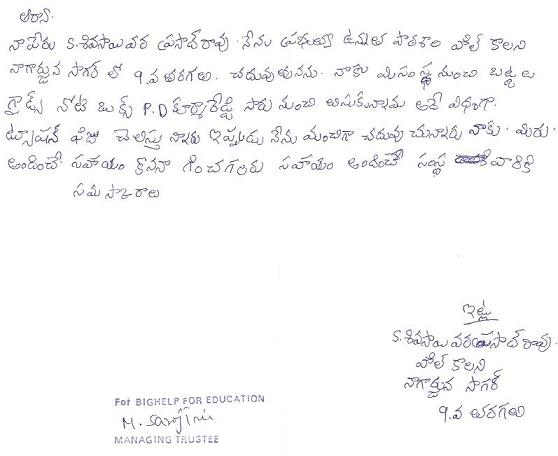 ఆర్యా.
నాపేరు S.శివసాయి వర ప్రసాద్ రావు. నేను ప్రభుత్వ ఉన్నత పాఠశాల హిల్ కాలని
నాగార్జున సాగర్ లో 9.వ తరగతి. చదువుతున్నను. నాకు మీ సంస్థ నుంచి బట్టలు
నోట్ బుక్స్ P.D కూర్మారెడ్డి సారు నుంచి తీసుకున్నాను అదే విధంగా.
ట్యూషన్ ఫీజు చెలిస్తు న్నారు ఇప్పుడు నేను మంచిగా చదువు చున్నాను నాకు. మీరు.
అందించే సహాయం కొనసా గించగలరు సహాయం అందించే సంస్థ వారికి
నమస్కారాలు
ఇట్లు
S.శివసాయి వరప్రసాద్ రావు.
హిల్ కాలని
నాగార్జున సాగర్
9.వ తరగతి
For BIGHELP FOR EDUCATION
MANAGING TRUSTEE